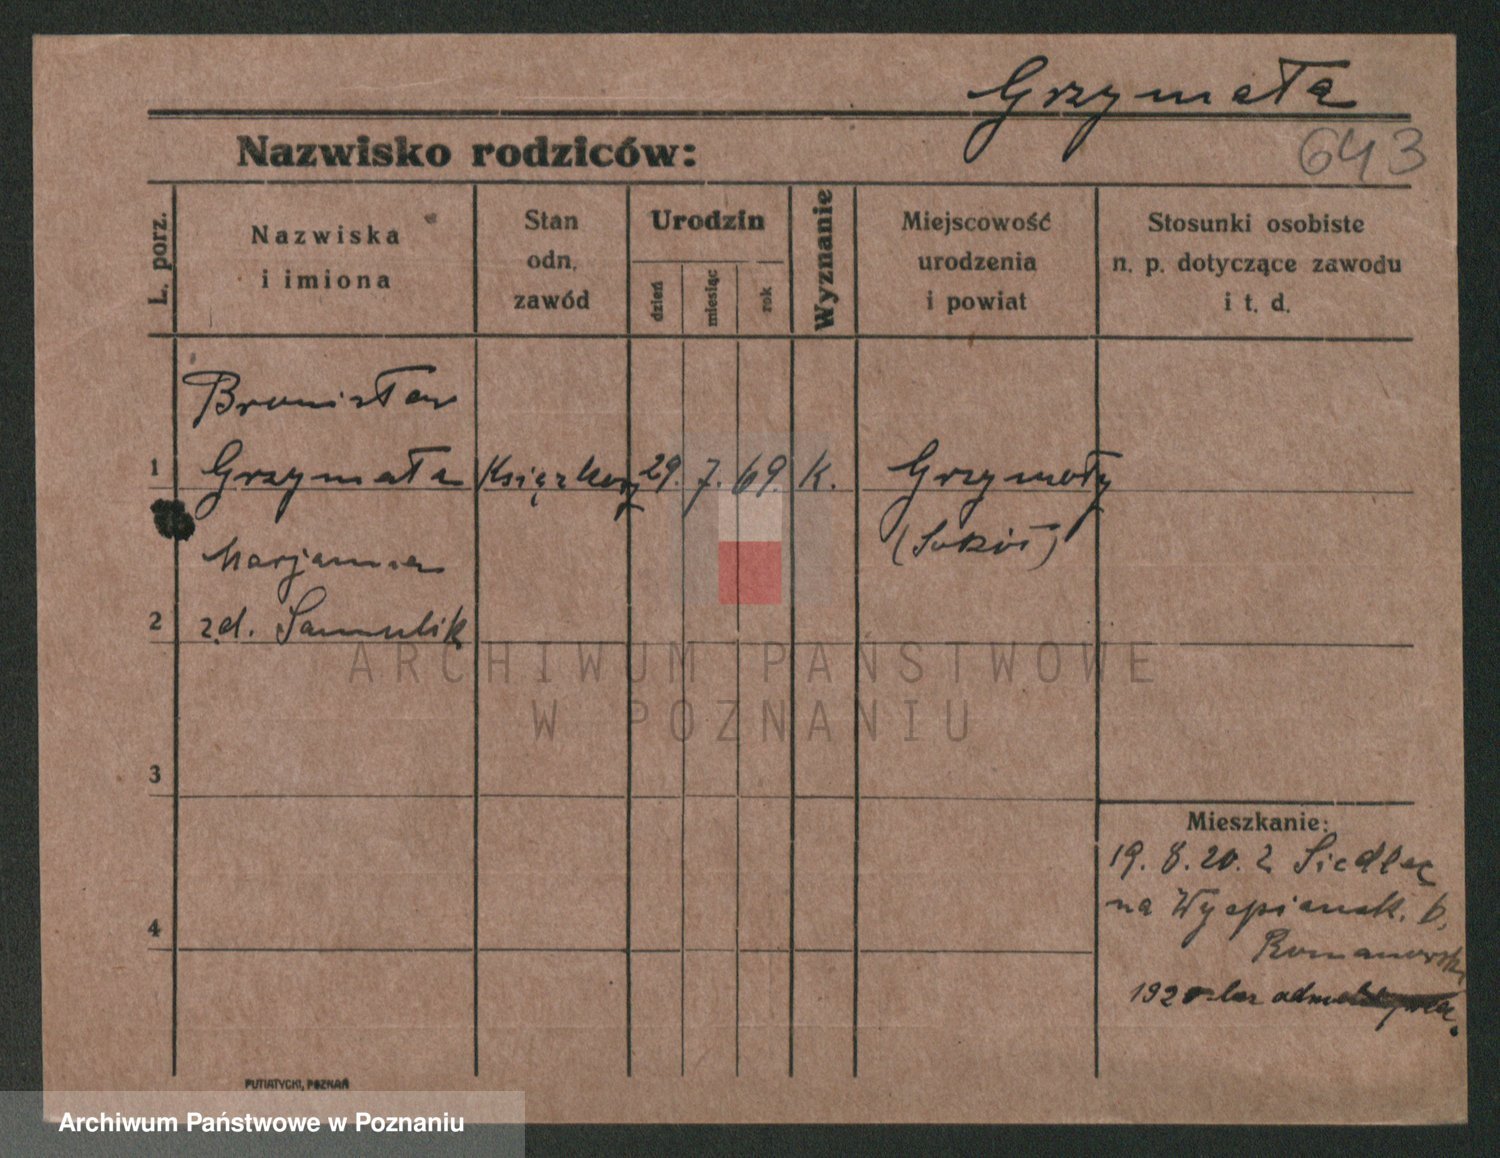 Grzymała
643
Nazwisko rodziców:
L. porz.
Nazwiska
i imiona
Stan
odn.
zawód
Urodzin
dzień
miesiąc
rok
Wyznanie
Miejscowość
urodzenia
i powiat
Stosunki osobiste
n. p. dotyczące zawodu
i t. d.
Bronisław
1 Grzymała Książkowy 29. 7. 69. K. Grzymały
(Sokół)
Marjanna
2 zd. Samulik
ARCHIWUM PAŃSTWOWE
W POZNANIU
3
Mieszkanie:
19. 8. 20. z Siedlec
na Wyspiansk. 6,
4
Romanowski
192
PUTIATYCKI, POZNAŃ
Archiwum Państwowe w Poznaniu